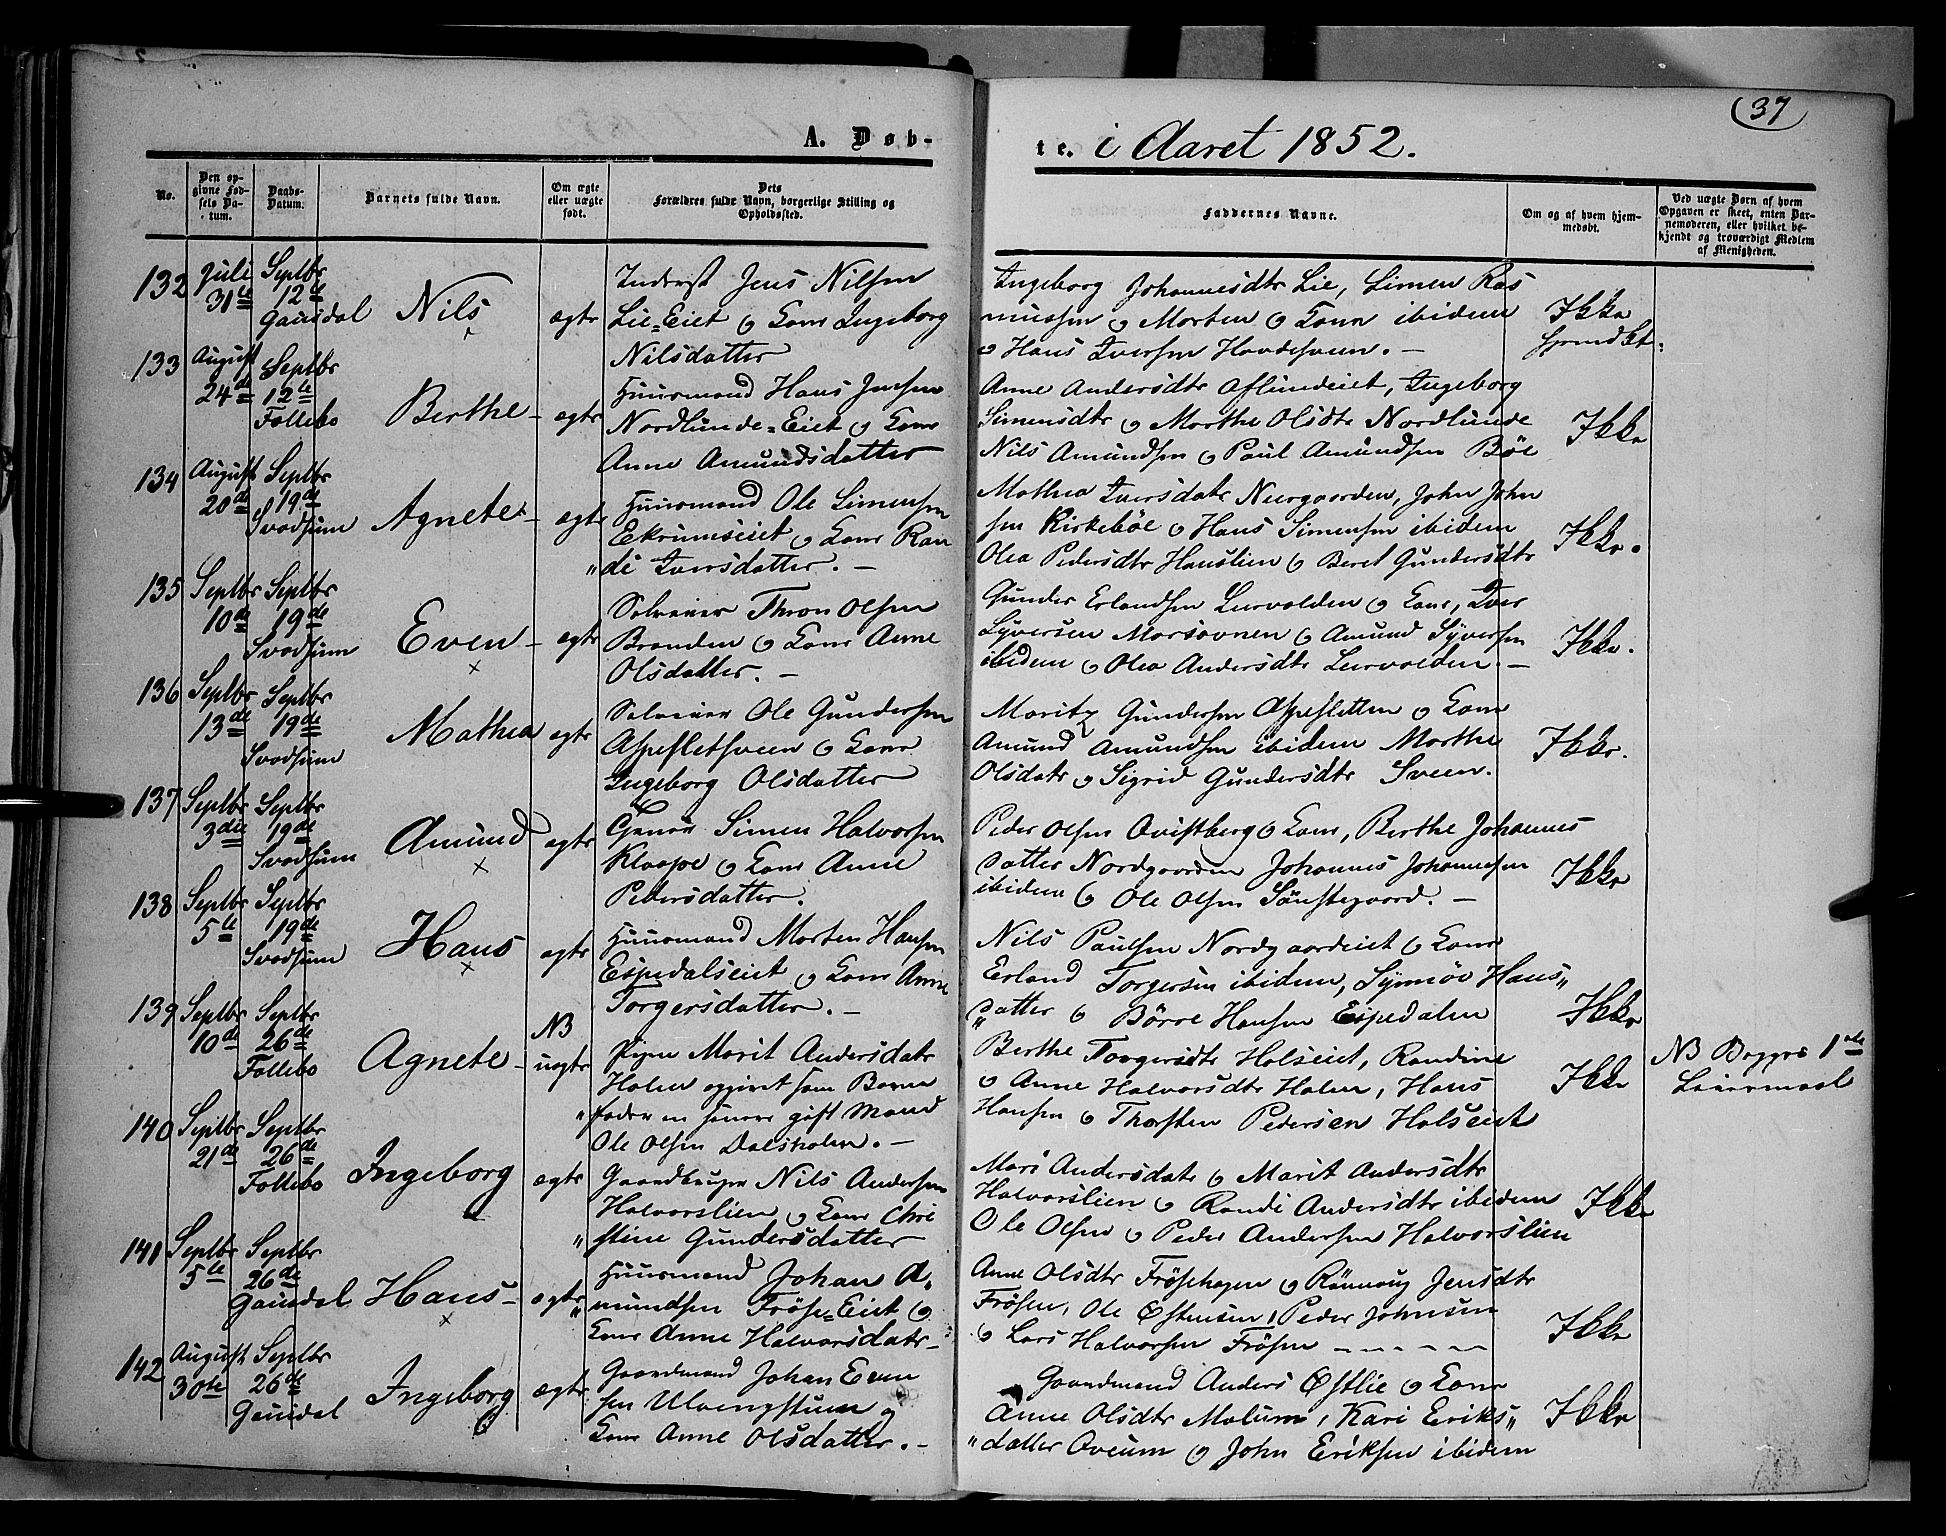 37
A. Døb-
te. i Aaret 1852.
No.
Den op-
givne Fød-
sels Da-
tum.
Daabs-
Datum.
Barnets fulde Navn.
Om ægte
eller uægte
født.
Dets
Forældres fulde Navn, borgerlige Stilling og
Opholdssted.
Faddernes Navne.
Om og af hvem hjem-
medøbt.
Ved uægte Børn af hvem
Opgaven er skeet, enten Bar-
nemoderen, eller hvilket be-
kjendt og troværdigt Medlem
af Menigheden.
132 Juli 31te
Septbr 12te Gausdal
Nils
ægte
Inderst Jens Nilsen
Lie=Eiet og Kone Ingeborg
Nilsdatter
Ingeborg Johannesdtr Lie, Simen Ras
mussen og Morten og Kone ibidem
og Hans Iversen Hovdesveen. —
Ikke
133 August 24de
Septbr 12te Follebo
Berthe
ægte
Huusmand Hans Jensen
Nordlunde=Eiet og Kone
Anne Amundsdatter
Anne Andersdtr Aslundeiet, Ingeborg
Simensdtr og Marthe Olsdtr Nordlunde
Nils Amundsen og Paul Amundsen Bøe
Ikke
134 August 20de
Septbr 19de Svadsum
Agnete
ægte
Huusmand Ole Simensen
Ekrumseiet og Kone Ran
di Iversdatter. —
Mathea Iversdatr Neergaarden, John John
sen Kirkebøe og Hans Simensen ibidem
Olea Pedersdtr Hauslien og Beret Gundersdtr
Ikke.
135 Septbr 10de
Septbr 19de Svadsum
Even
ægte
Selveier Thron Olsen
Branden og Kone Anne
Olsdatter. —
Gunder Erlandsen Leervolden og Kone, Iver
Syversen Morsovnen og Amund Syversen
ibidem og Olea Andersdtr Leervolden. —
Ikke.
136 Septbr 13de
Septbr 19de Svadsum
Mathea
ægte
Selveier Ole Gundersen
Aspesletsveen og Kone
Ingeborg Olsdatter
Moritz Gundersen Aspesletten og Kone
Amund Amundsen ibidem Marthe
Olsdatr og Sigrid Gundersdtr Sveen.
Ikke.
137 Septbr 3die
Septbr 19de Svadsum
Amund
ægte
Simen Halvorsen
Klaape og Kone Anne
Pedersdatter.
Peder Olsen Qvistberg og Kone, Berthe Johannes
datter Nordgaarden Johannes Johannesen
ibidem og Ole Olsen Sønstegaard. —
Ikke
138 Septbr 5te
Septbr 19de Svadsum
Hans
ægte
Huusmand Morten Hansen
Espedalseiet og Kone Anne
Torgersdatter. —
Nils Paulsen Nordgaardeiet og Kone
Erland Torgersen ibidem, Synnøv Hans„
„datter og Børre Hansen Espedalen
Ikke
139 Septbr 10de
Septbr 26de Follebo
Agnete
NB
uægte
Pigen Marit Andersdatr
Holen opgivet som Barne
„fader en ... gift Mand
Ole Olsen Dalsholen. —
Berthe Torgersdtr Holseiet, Randine
og Anne Halvorsdtr Holen, Hans
Hansen og Thorsten Pedersen Holseiet
Ikke
NB Begges 1ste
Leiermaal
140 Septbr 21de
Septbr 26de Follebo
Ingeborg
ægte
Gaardbruger Nils Andersen
Halvorslien og Kone Chri
„stine Gundersdatter
Mari Andersdatr og Marit Andersdtr
Halvorslien og Randi Andersdtr ibidem
Ole Olsen og Peder Andersen Halvorslien
Ikke
141 Septbr 5te
Septbr 26de Gausdal
Hans
ægte
Huusmand Johan A„
„mundsen Frøse=Eiet og
Kone Anne Halvorsdatr
Anne Olsdtr Frøsehagen og Rønnaug Jensdtr
Frøsen, Ole Østensen, Peder Johnsen
og Lars Halvorsen Frøsen
Ikke
142 August 30te
Septbr 26de Gausdal
Ingeborg
ægte
Gaardmand Johan Even
sen Ulvengstuen og
Kone Anne Olsdatter. —
Gaardmand Anders Østlie og Kone
Anne Olsdtr Molum, Kari Eriks„
„datter Aveum og John Eriksen ibidem
Ikke